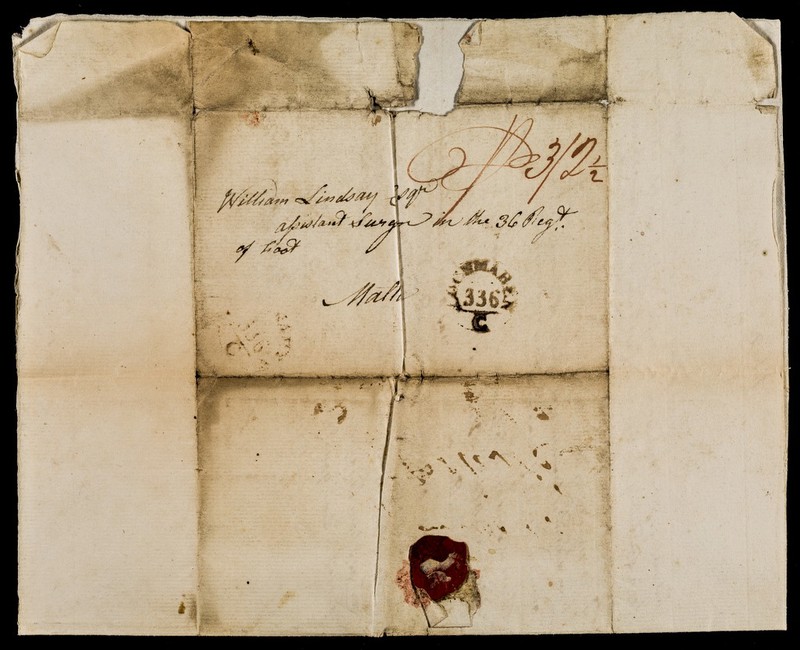 P 3/2½
William Lindsay Esqr
assistant Surgn in the 36 Regt.
of Foot
Malta
336
C
336
C